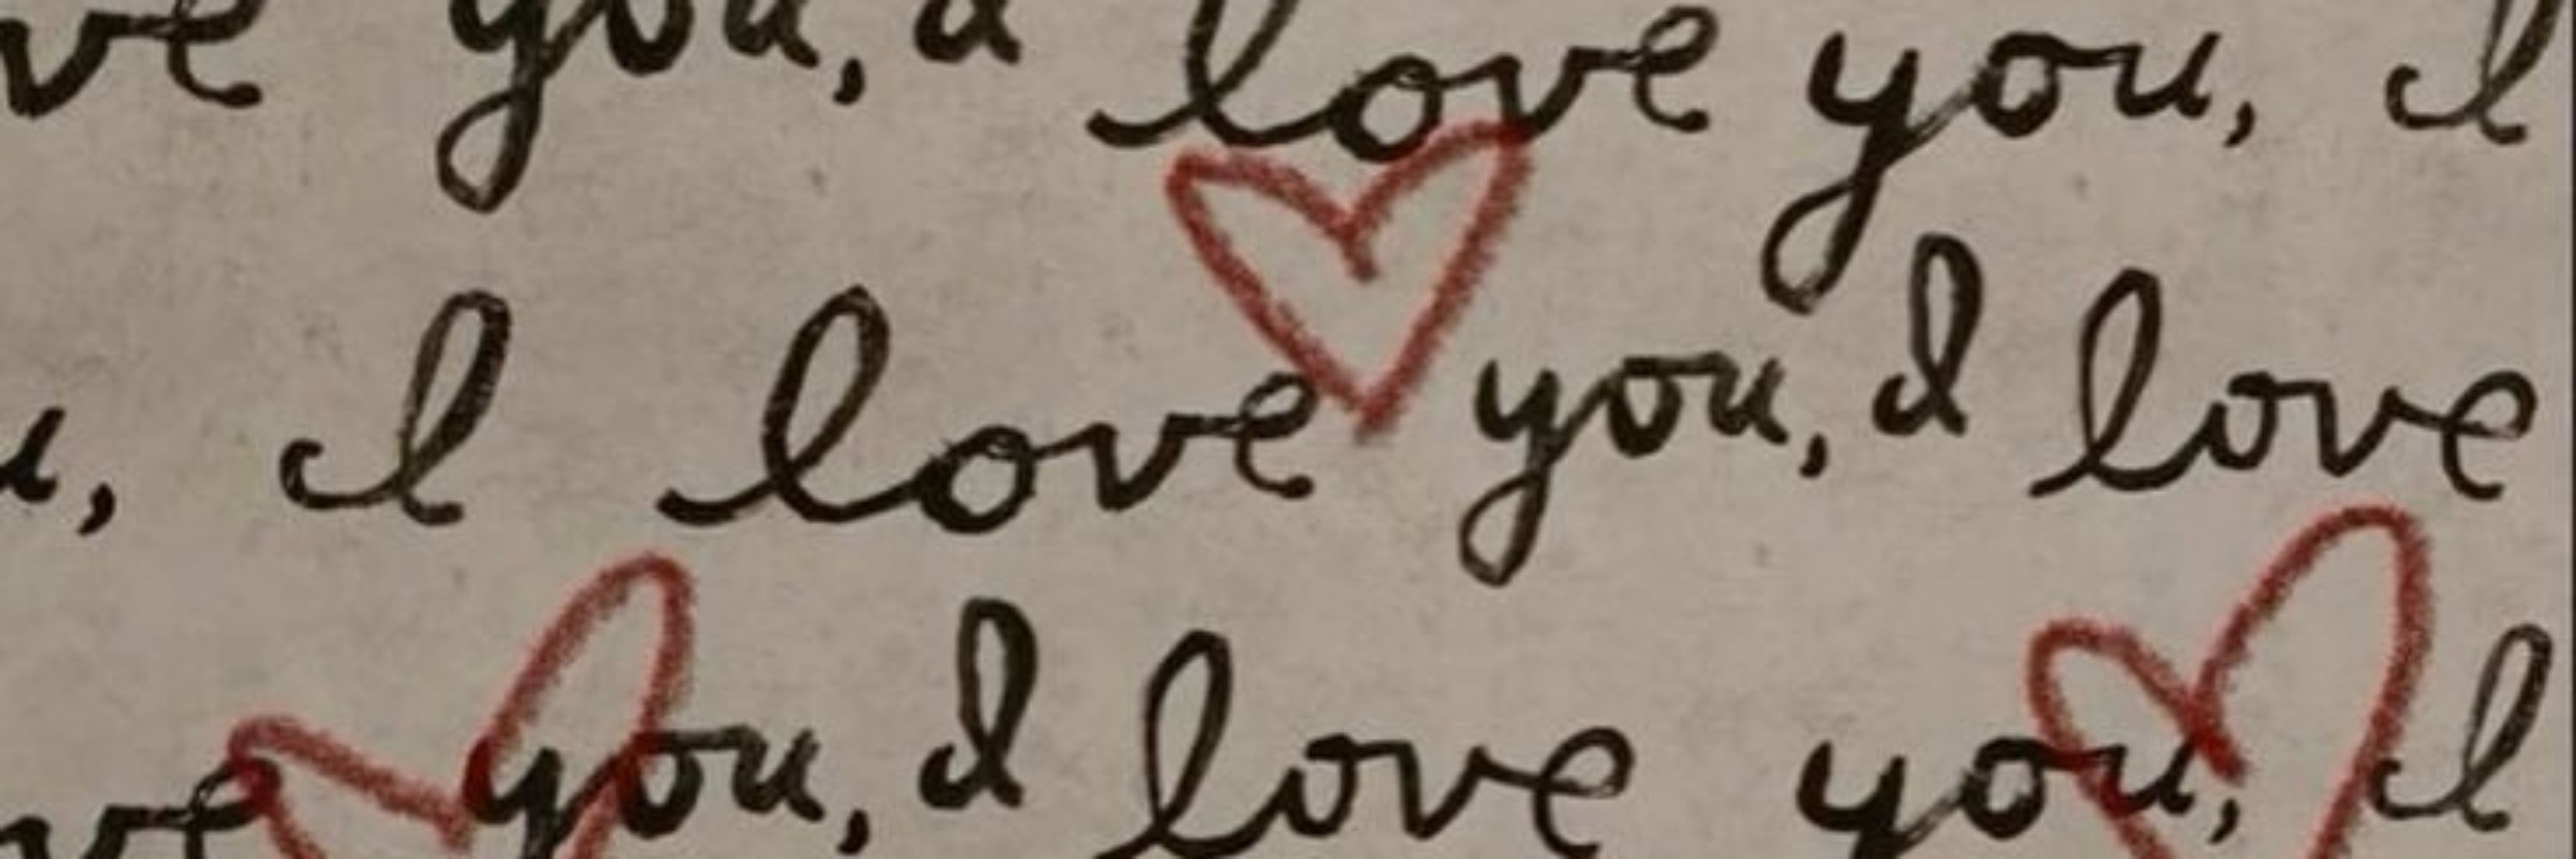 ve you, I love you, I
u, I love you, I love
ve you, I love you, I